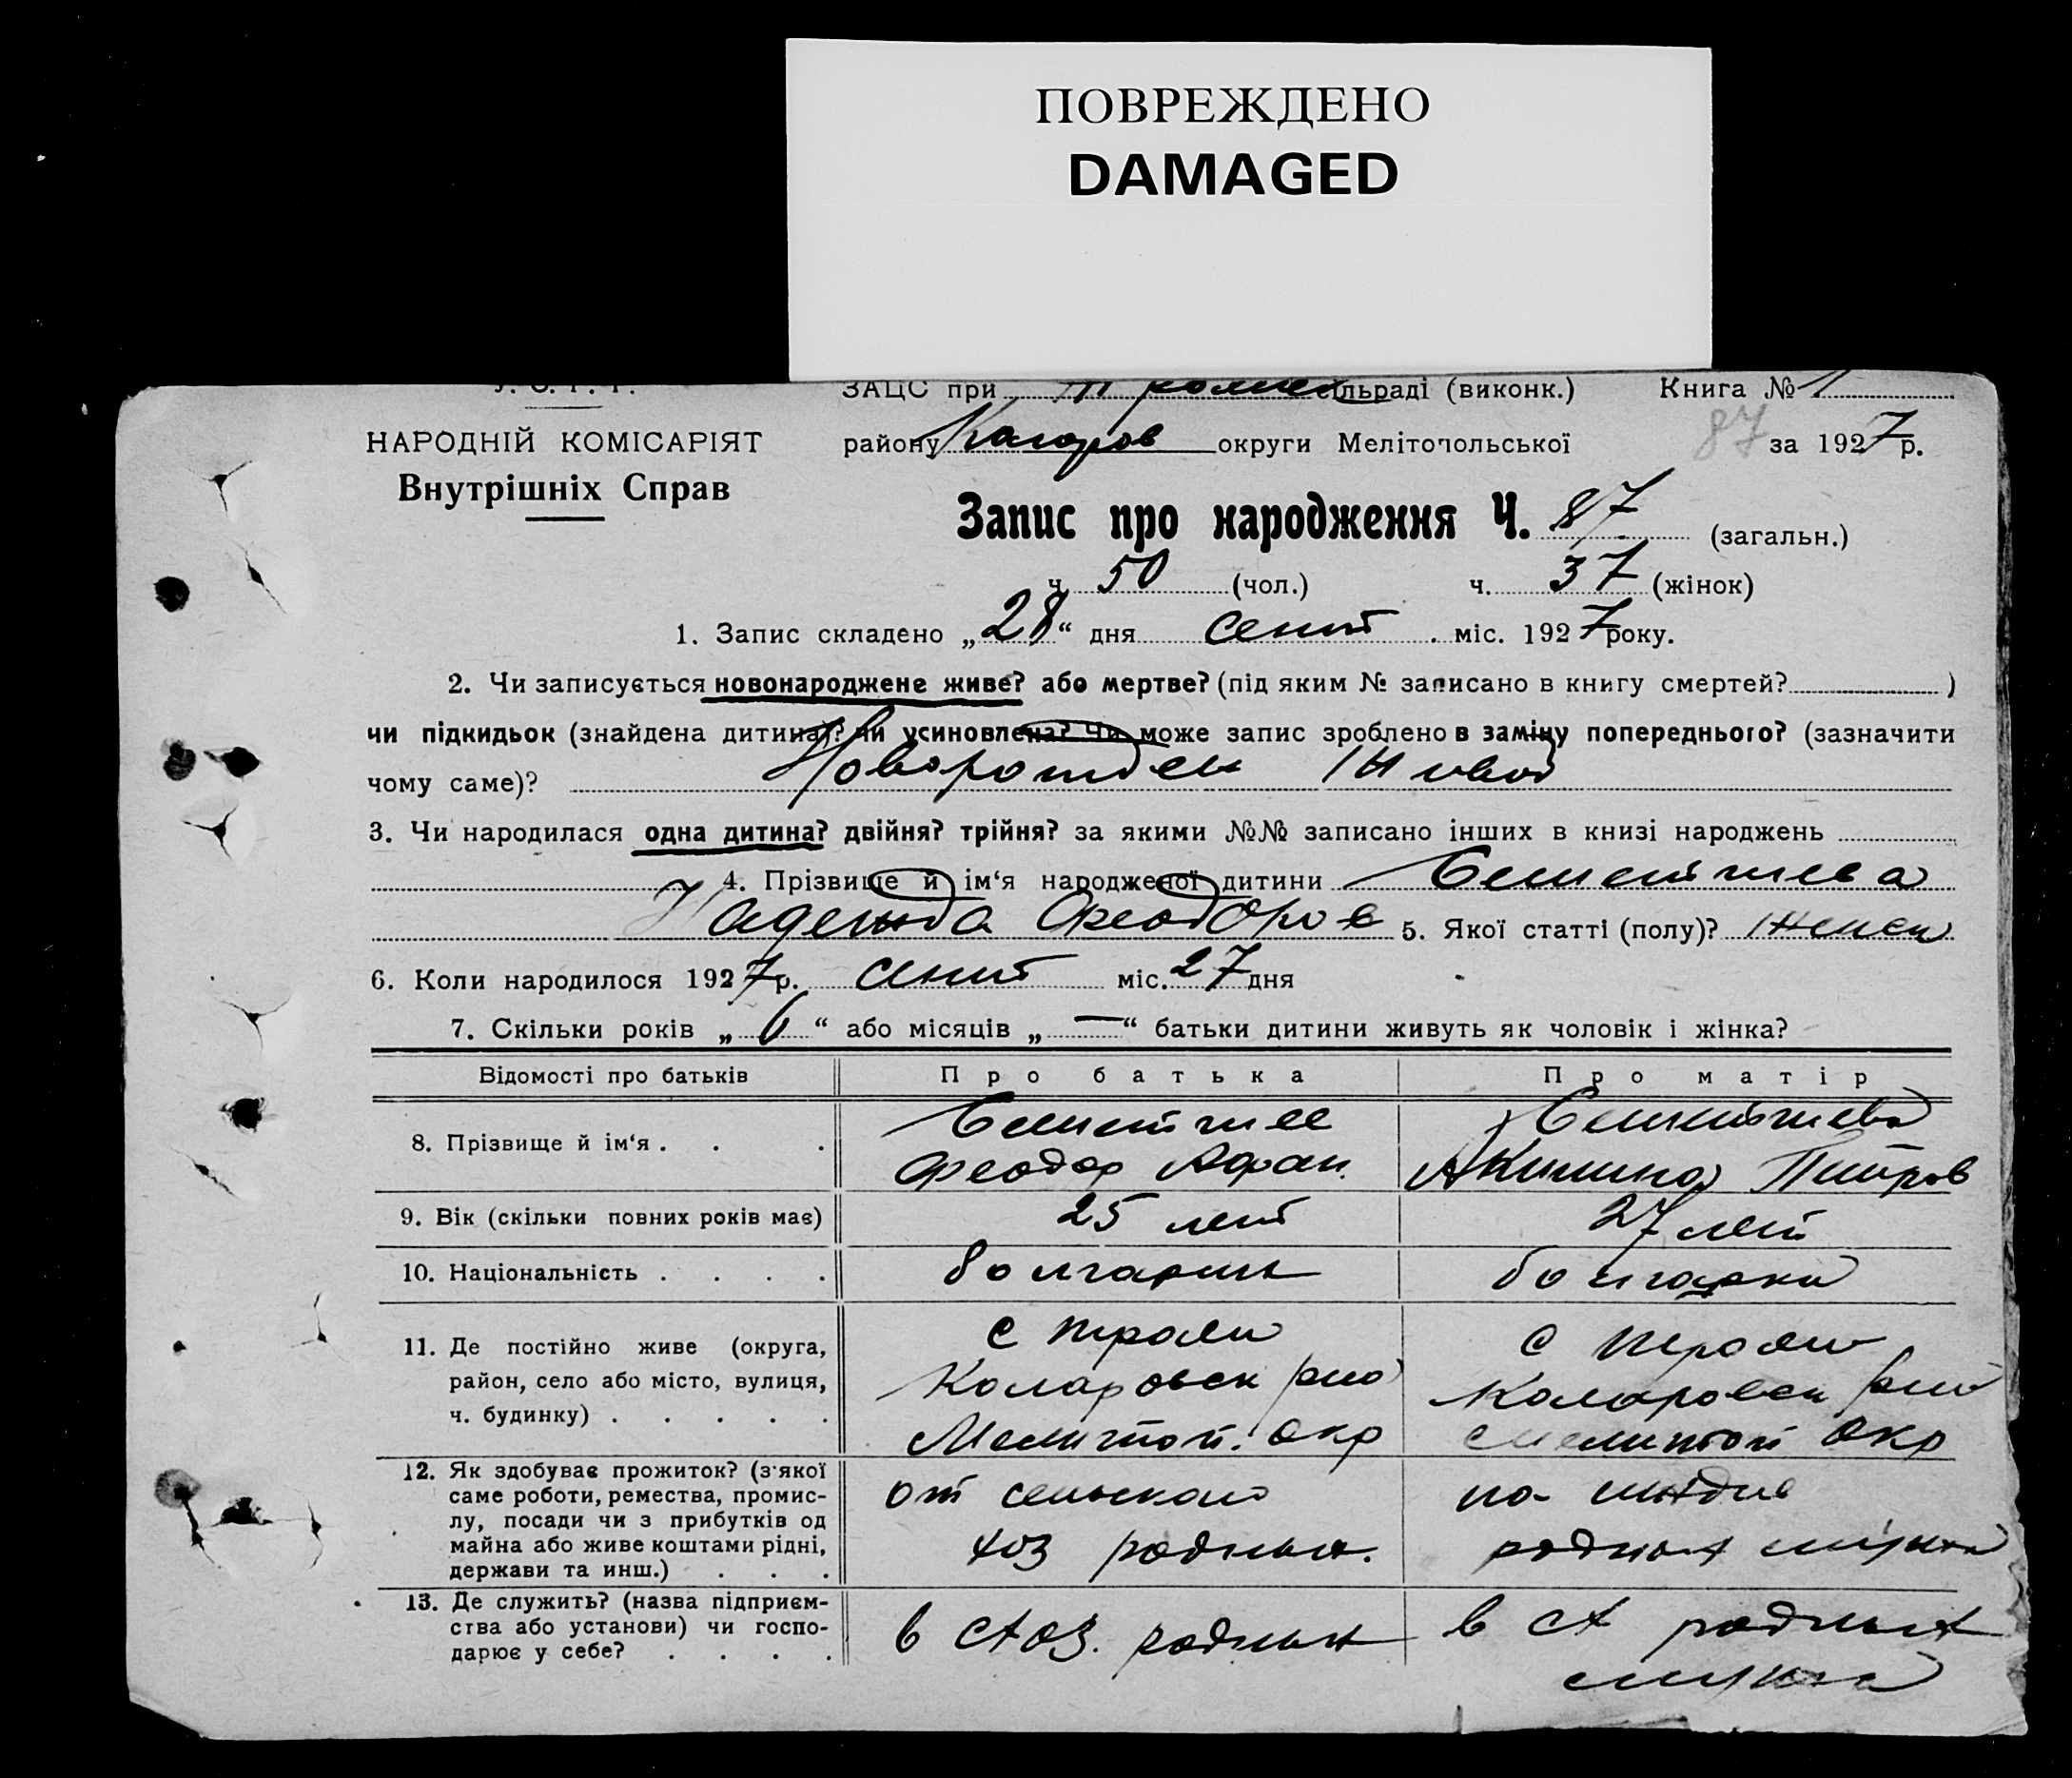 ПОВРЕЖДЕНО
DAMAGED
ЗАЦС при сільраді (виконк.) Книга № 1
НАРОДНІЙ КОМІСАРІЯТ
Внутрішніх Справ
району Коларов округи Мелітопольської 87 за 1927 р.
Запис про народження Ч. 87 (загальн.)
ч. 50 (чол.) ч. 37 (жінок)
1. Запис складено „28“ дня сент. міс. 1927 року.
2. Чи записується новонароджене живе? або мертве? (під яким № записано в книгу смертей? )
чи підкидьок (знайдена дитина)? чи усиновлена? Чи може запис зроблено в заміну попереднього? (зазначити
чому саме)? Новорожден живой
3. Чи народилася одна дитина? двійня? трійня? за якими №№ записано інших в книзі народжень
4. Прізвище й ім‘я народженої дитини
Надежда Феодоров 5. Якої статті (полу)? женск
6. Коли народилося 1927 р. сент міс. 27 дня
7. Скільки років „6“ або місяців „—“ батьки дитини живуть як чоловік і жінка?
Відомості про батьків Про батька Про матір
8. Прізвище й ім‘я . . .
Феодор Афан.
Акилина Петров
9. Вік (скільки повних років має) 25 лет 27 лет
10. Національність . . . . болгарин болгарка
11. Де постійно живе (округа, район, село або місто, вулиця, ч. будинку) . . . . .
с Трояны
Коларовск р-на
Мелитоп. окр
с Трояны
Коларовск р-на
Мелитоп окр
12. Як здобуває прожиток? (з якої саме роботи, ремества, промислу, посади чи з прибутків од майна або живе коштами рідні, держави та инш.) . . .
от сельского
хоз родных.
на иждив
родных мужа
13. Де служить? (назва підприємства або установи) чи господарює у себе? . . . .
в схоз. родных
в сх родных
мужа